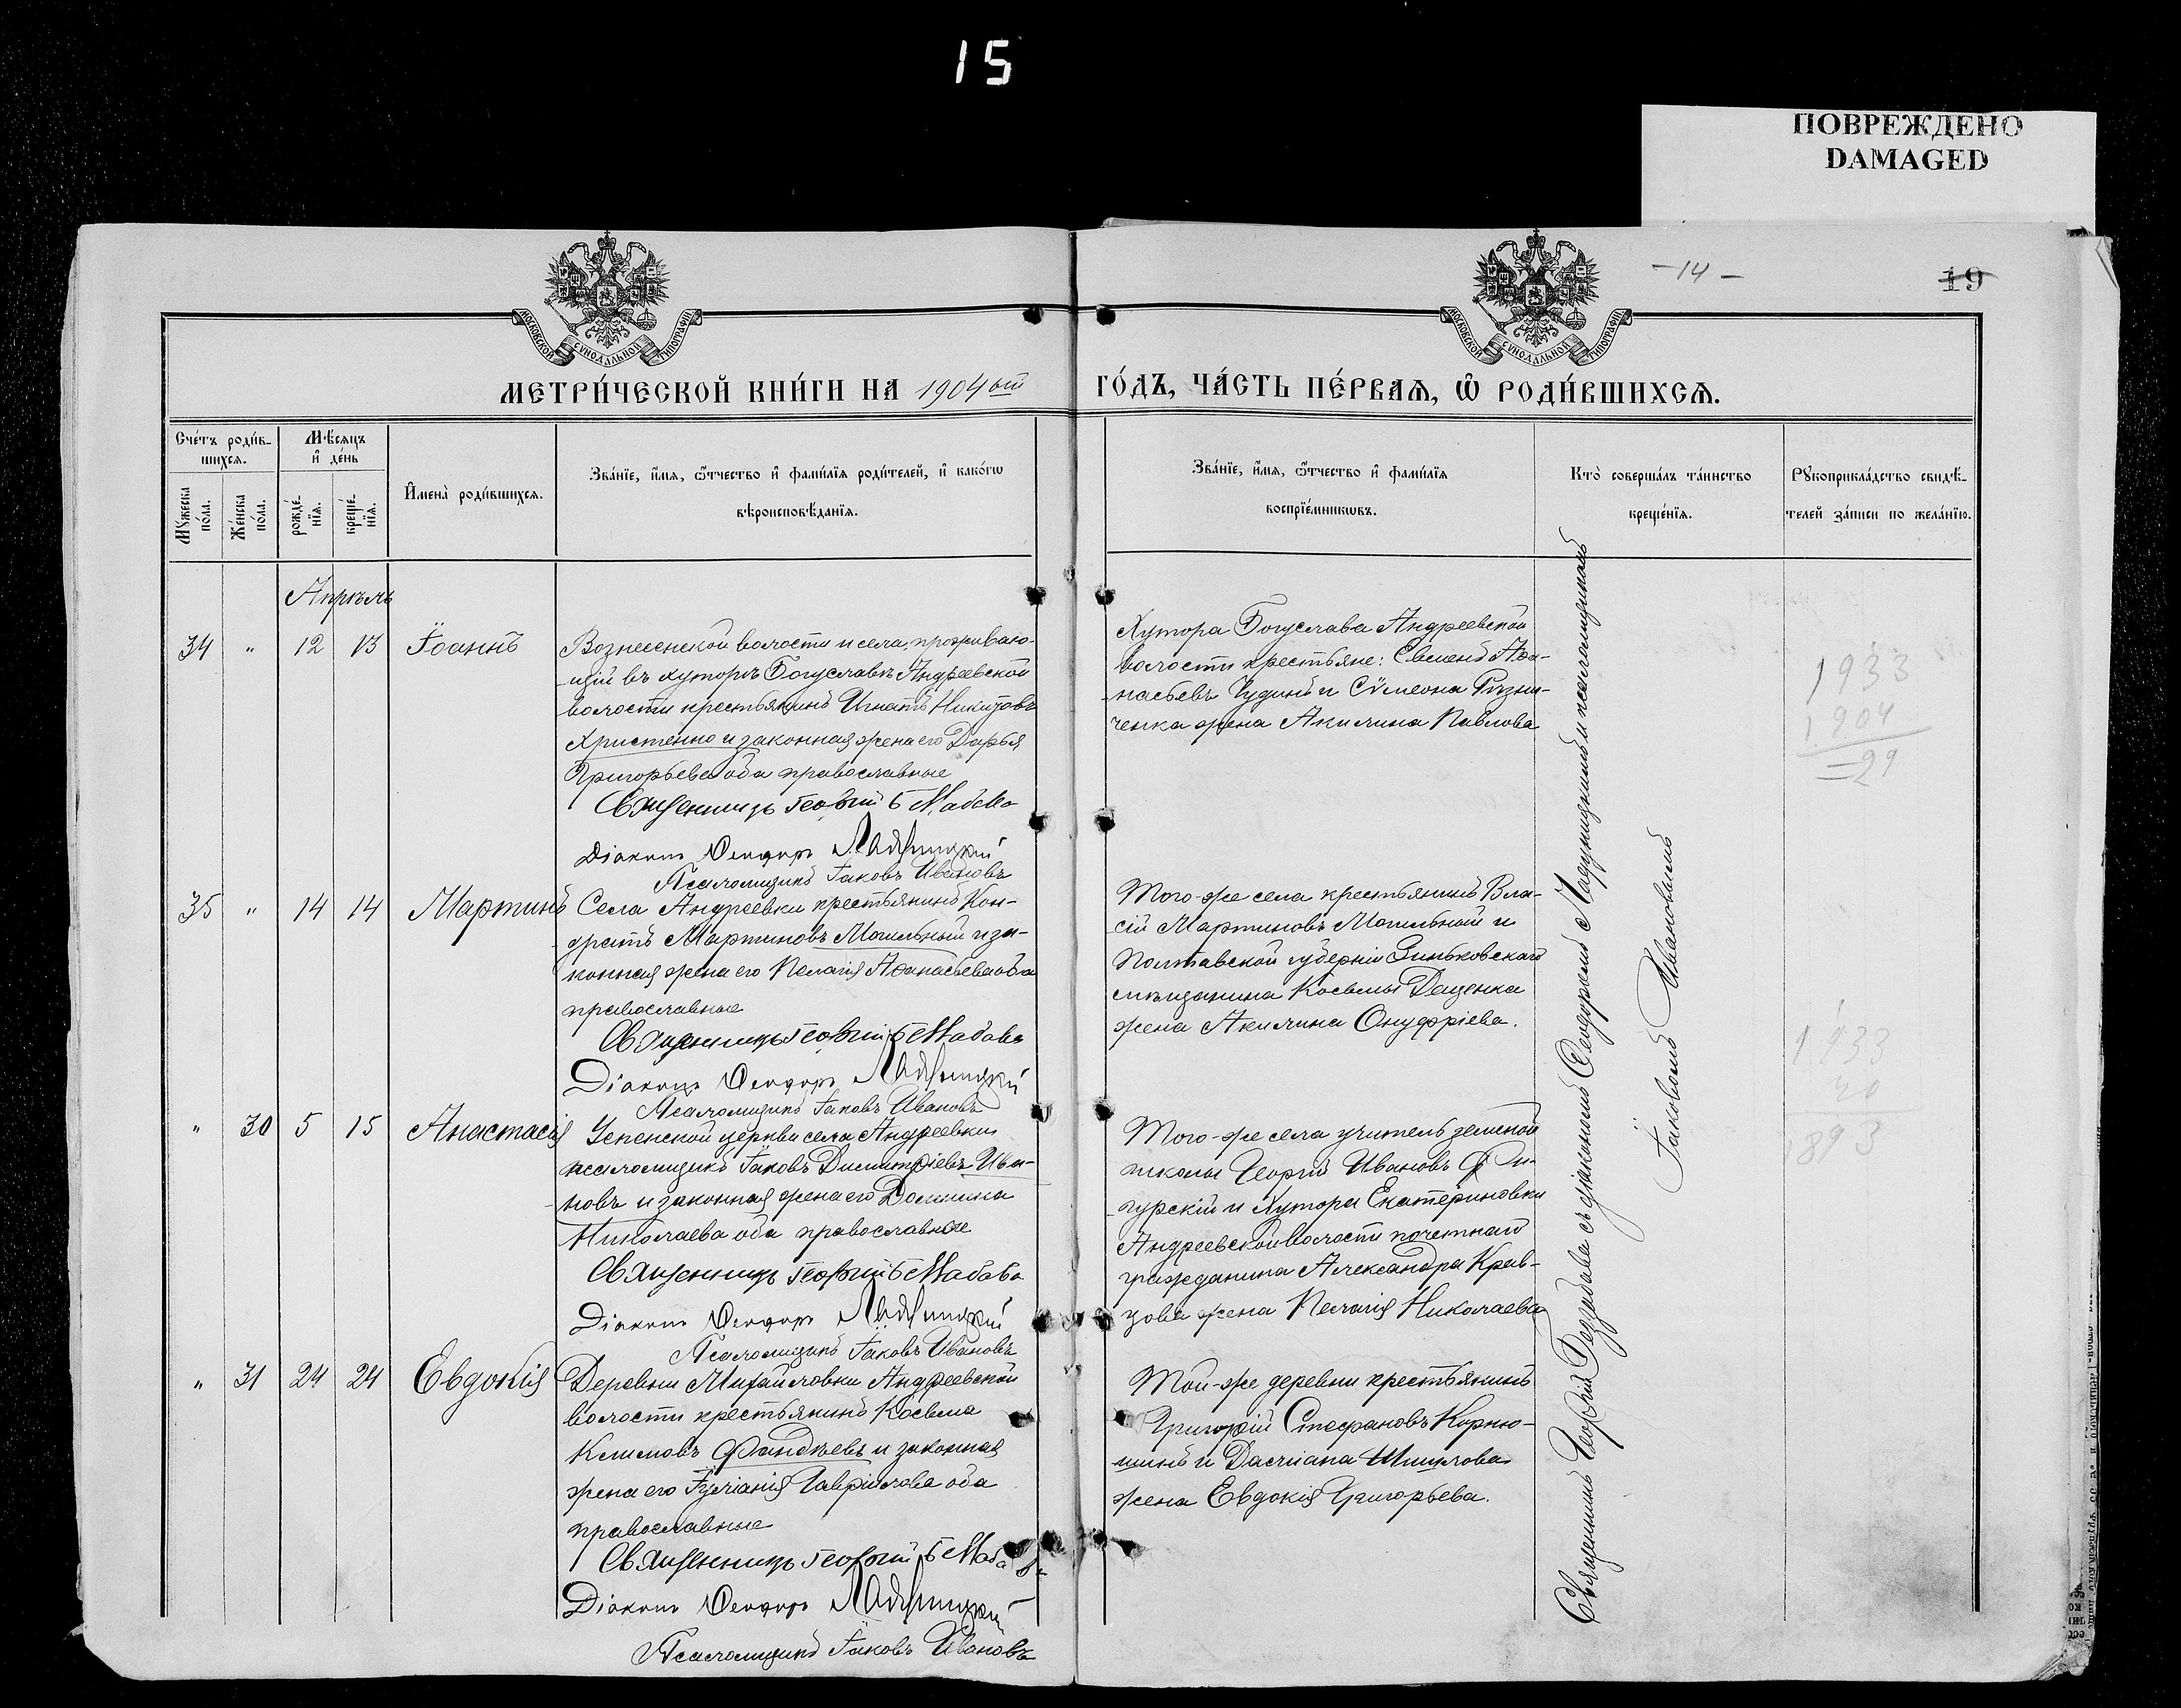 15
ПОВРЕЖДЕНО
DAMAGED
МОСКОВСКОЙ СѴНОДАЛЬНОЙ ТИПОГРАФІИ
МОСКОВСКОЙ СѴНОДАЛЬНОЙ ТИПОГРАФІИ
– 14 –
19
МЕТРИ́ЧЕСКОЙ КНИ́ГИ НА 1904 ый ГО́ДЪ, ЧА́СТЬ ПЕ́РВАЯ, Ѡ РОДИ́ВШИХСЯ.
Сче́тъ роди́в-
шихся.
Мꙋ́жеска
по́ла.
Же́нска
по́ла.
Мѣ́сяцъ
и҆ де́нь
рожде́-
нїя.
креще́-
нїя.
И҆мена̀ роди́вшихся.
Зва́нїе, и҆́мя, ѻ҆́тчество и҆ фами́лїя роди́телей, и҆ како́гѡ
вѣроисповѣ́данїя.
Зва́нїе, и҆́мя, ѻ҆́тчество и҆ фами́лїя
воспрїе́мникѡвъ.
Кто̀ соверша́лъ та́инство
креще́нїя.
Рꙋкоприкла́дство свидѣ́-
телей за́писи по жела́нїю.
Апрѣль
34 " 12 13 Іоаннъ
Вознесенской волости и села, проживаю-
щій въ хуторѣ Богуславѣ Андреевской
волости крестьянинъ Игнатъ Никитовъ
Христенко и законная жена его Дарья
Григорьева оба православные
Священникъ Георгій
Діаконъ Ѳеодоръ
Псаломщикъ Іаковъ Ивановъ
Хутора Богуслава Андреевской
волости крестьяне: Евмений Аѳа-
насьевъ Чудинъ и Сѵмеона Рѣзни-
ченка жена Акилина Павлова
1933
1904
=29
35 " 14 14 Мартинъ
Села Андреевки крестьянинъ Кон-
дратъ Мартиновъ Могильный и за-
конная жена его Пелагія Аѳанасьева оба
православные
Священникъ Георгій
Діаконъ Ѳеодоръ
Псаломщикъ Іаковъ Ивановъ
Того-же села крестьянинъ Вла-
сій Мартиновъ Могильный и
Полтавской губерніи Зиньковскаго
мѣщанина Косьмы Даценка
жена Акилина Онуфріева.
1933
40
1893
" 30 5 15 Анастасія
Успенской церкви села Андреевки
псаломщикъ Іаковъ Димитріевъ Ива-
новъ и законная жена его Домника
Николаева оба православные
Священникъ Георгій
Діаконъ Ѳеодоръ
Псаломщикъ Іаковъ Ивановъ
Того-же села учитель земской
школы Георгій Ивановъ
и Хутора Екатериновки
Андреевской волости почетнаго
гражданина Александра Крав-
цова жена Пелагія Николаева
" 31 24 24 Евдокія
Деревни Михайловки Андреевской
волости крестьянинъ Косьма
Климовъ Фандѣевъ и законная
жена его Іуліанія Гавріилова оба
православные
Священникъ Георгій
Діаконъ Ѳеодоръ
Псаломщикъ Іаковъ Ивановъ
Той-же деревни крестьянинъ
Григорій Стефановъ Корню-
шинъ и Дасиана Шишлова
жена Евдокія Григорьева.
Священникъ Георгій съ діакономъ Ѳеодоромъ и псаломщикомъ
Іаковомъ Ивановымъ